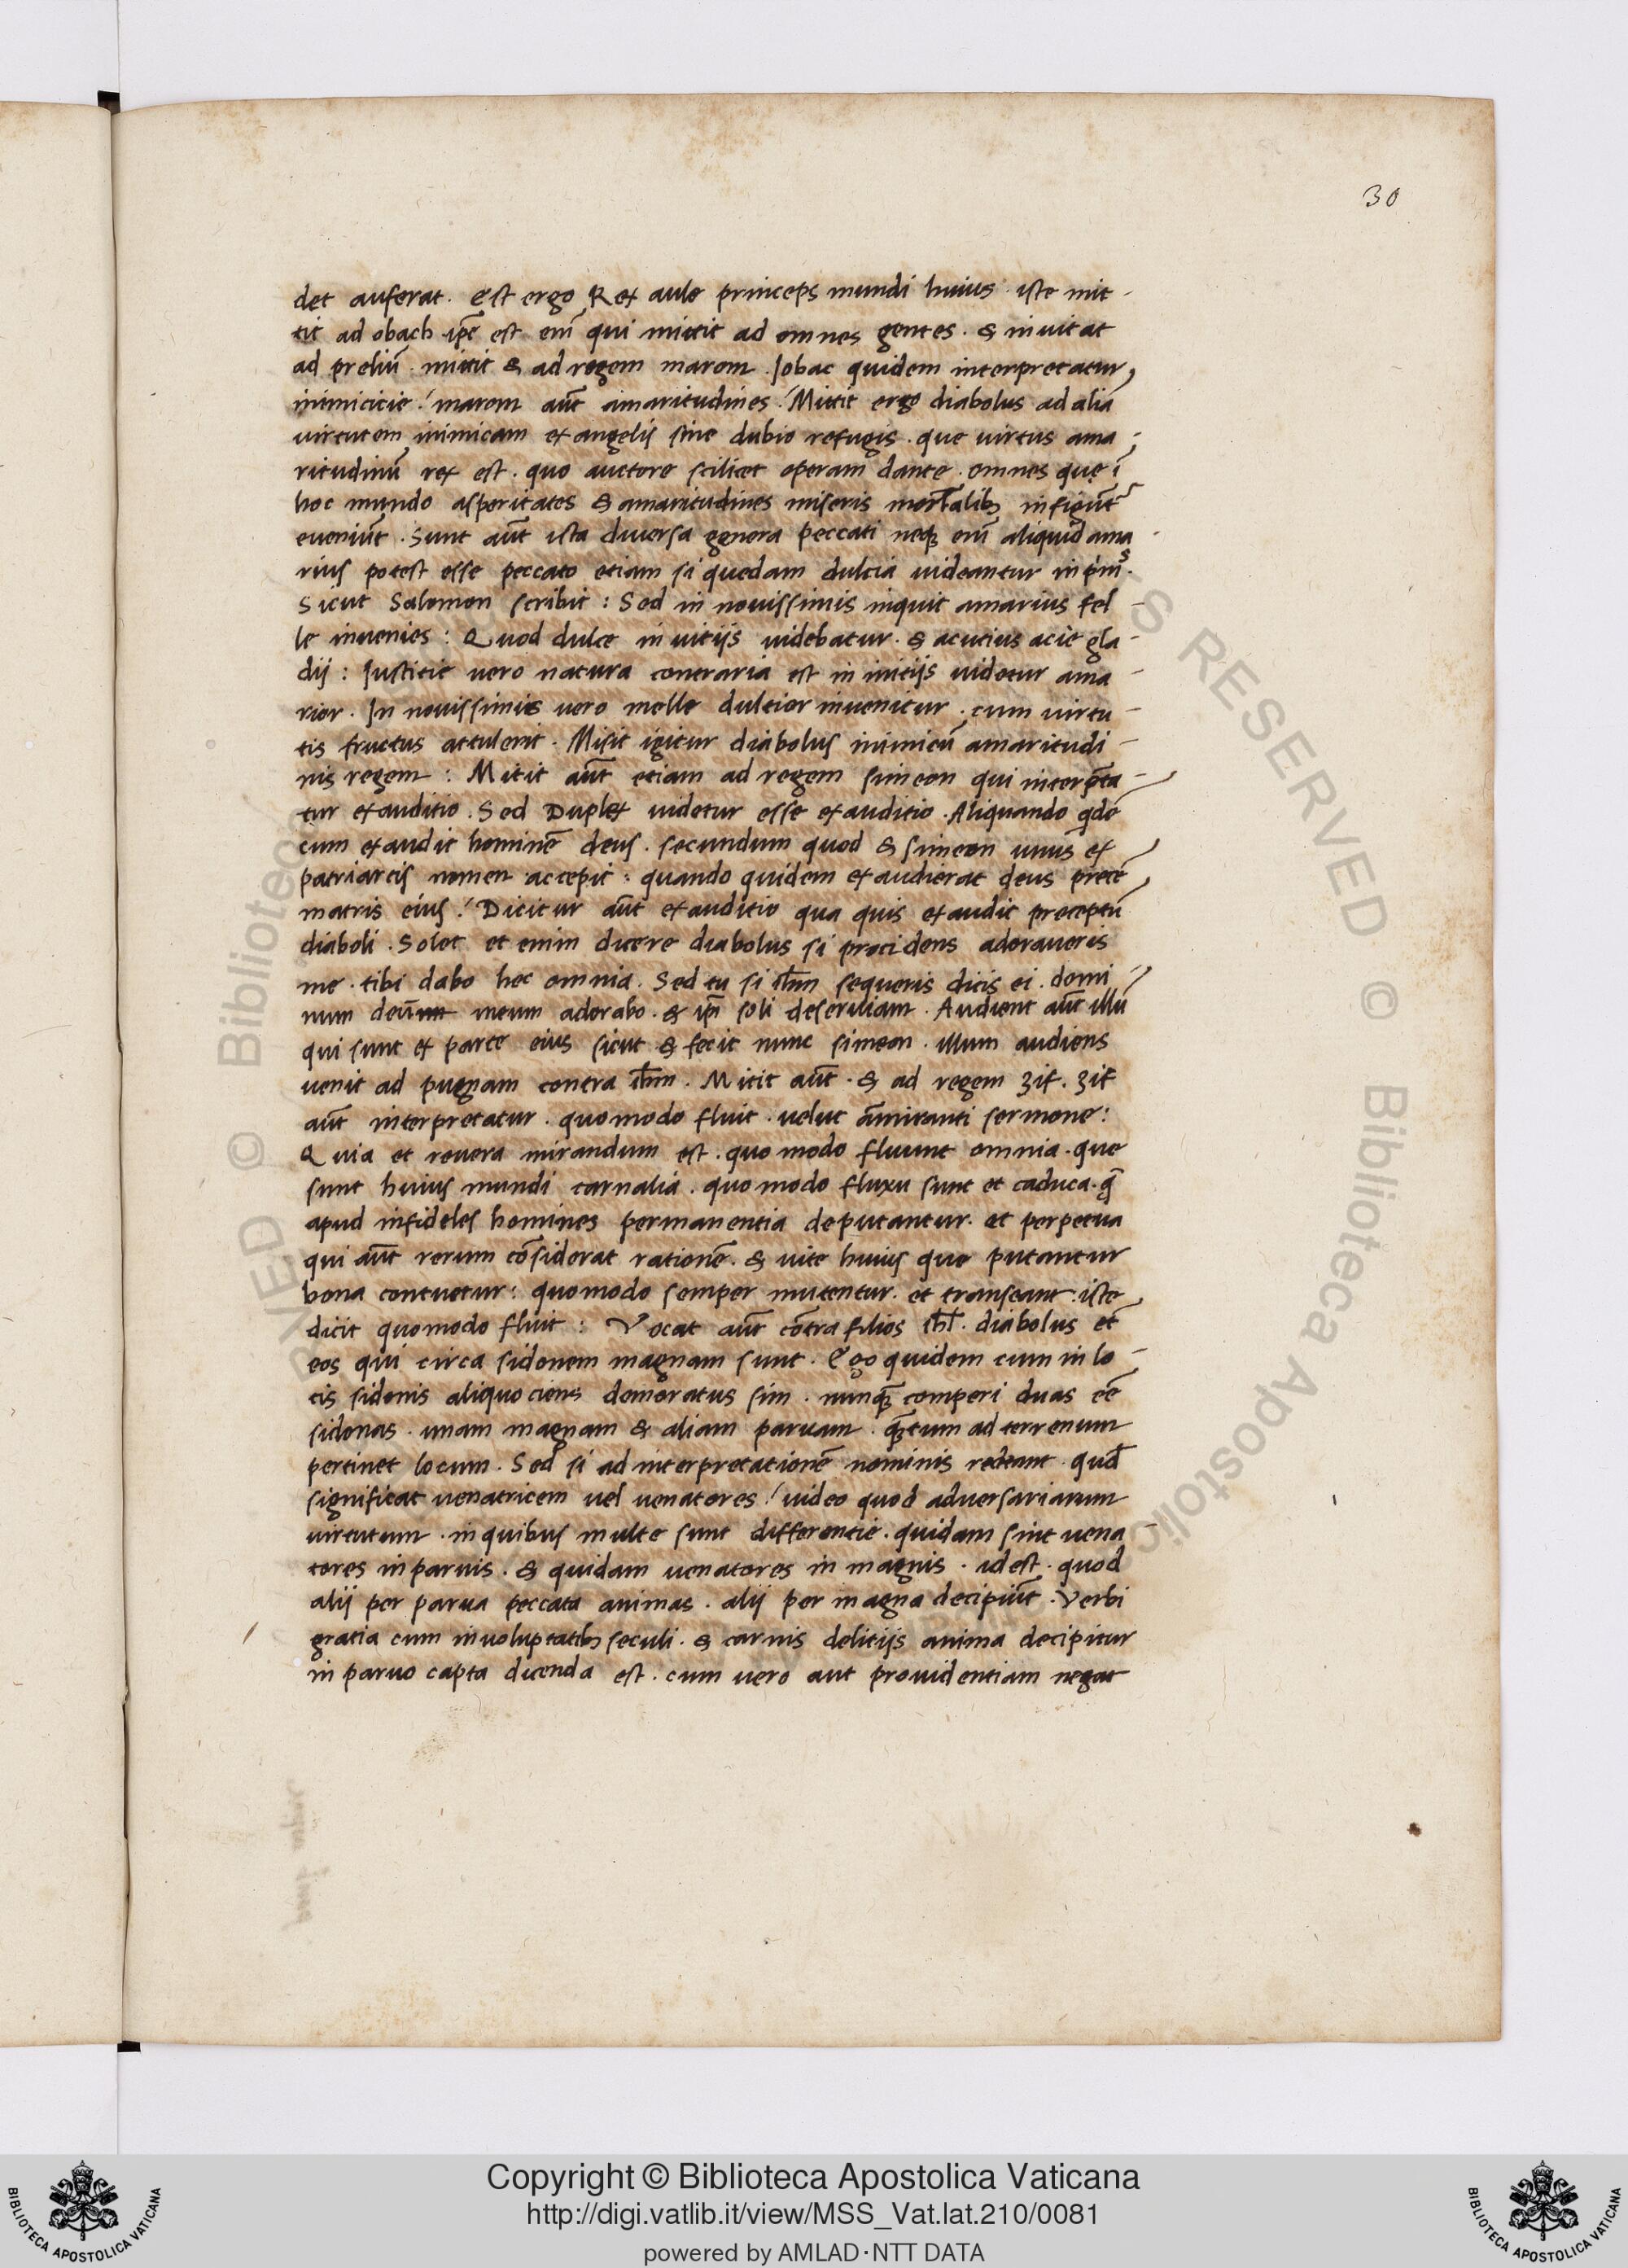 30
det auferat. Est ergo Rex aule princeps mundi huius. iste mit-
tit ad obach. ip̄e est em̄ qui mittit ad omnes gentes. & inuitat
ad preliū. mittit & ad regem marom. Jobac quidem interpretatur
inimicicie / marom aūt amaritudines / Mittit ergo diabolus ad aliā
virtutem inimicam ex angelis sine dubio refugis. que virtus ama-
ritudinū rex est. quo auctore scilicet operam dante. omnes que ī
hoc mundo asperitates & amaritudines miseris mortalib; infigūt
eueniūt. Sunt aūt ista diuersa genera peccati neq; em̄ aliquid ama-
rius potest esse peccato etiam si quedam dulcia uideantur in prīs.
Sicut Salomon scribit: Sed in nouissimis inquit amarius fel-
le inuenies: Quod dulce in vitijs videbatur. & acutius acie gla-
dij: Justitie vero natura contraria est in initijs uidetur ama-
rior. In nouissimis uero melle dulcior inuenitur. cum virtu-
tis fructus attulerit. Misit igitur diabolus inimicū amaritudi-
nis regem: Mitit aūt etiam ad regem simeon qui interp̄ta-
tur exauditio. Sed Duplex uidetur esse exauditio. Aliquando qdē
cum exaudit hominē deus. secundum quod & simeon unus ex
patriarcis nomen accepit: quando quidem exaudierat deus precē
matris eius / Dicitur aūt exauditio qua quis exaudit preceptū
diaboli. Solet et enim dicere diabolus si procidens adoraueris
me. tibi dabo hec omnia. Sed tu si ihm̄ sequeris dicis ei. domi-
num deū meum adorabo. & ip̄i soli deseruiam. Audient aūt illū
qui sunt ex parte eius sicut & fecit nunc simeon. illum audiens
uenit ad pugnam contra ihm̄. Mitit aūt. & ad regem zif. zif
aūt interpretatur. quomodo fluit. uelut āmiranti sermone:
Quia et reuera mirandum est. quo modo fluunt omnia. que
sunt huius mundi carnalia. quo modo fluxu sunt et caduca. q̄
apud infideles homines permanentia deputantur. et perpetua
qui aūt rerum cōsiderat rationē. & uite huius que putantur
bona contuetur: quomodo semper mutentur. et transeant. iste
dicit quomodo fluit: Vocat aūt cōtra filios ihl̄. diabolus et
eos qui circa sidonem magnam sunt. Ego quidem cum in lo-
cis sidonis aliquociens demoratus sim. nunq̄ comperi duas eē
sidonas. unam magnam & aliam paruam. q̄tum ad terrenum
pertinet locum. Sed si ad interpretationē nominis redeant. qud̄
significat uenatricem uel uenatores / uideo quod aduersariarum
virtutum. in quibus multe sunt differentie. quidam sint uena-
tores in paruis. & quidam uenatores in magnis. id est. quod
alij per parua peccata animas. alij per magna decipiūt. Verbi
gratia cum in uoluptatib; seculi. & carnis delitijs anima decipitur
in paruo capta dicenda est. cum uero aut prouidentiam negat
Copyright © Biblioteca Apostolica Vaticana
http://digi.vatlib.it/view/MSS_Vat.lat.210/0081
powered by AMLAD·NTT DATA